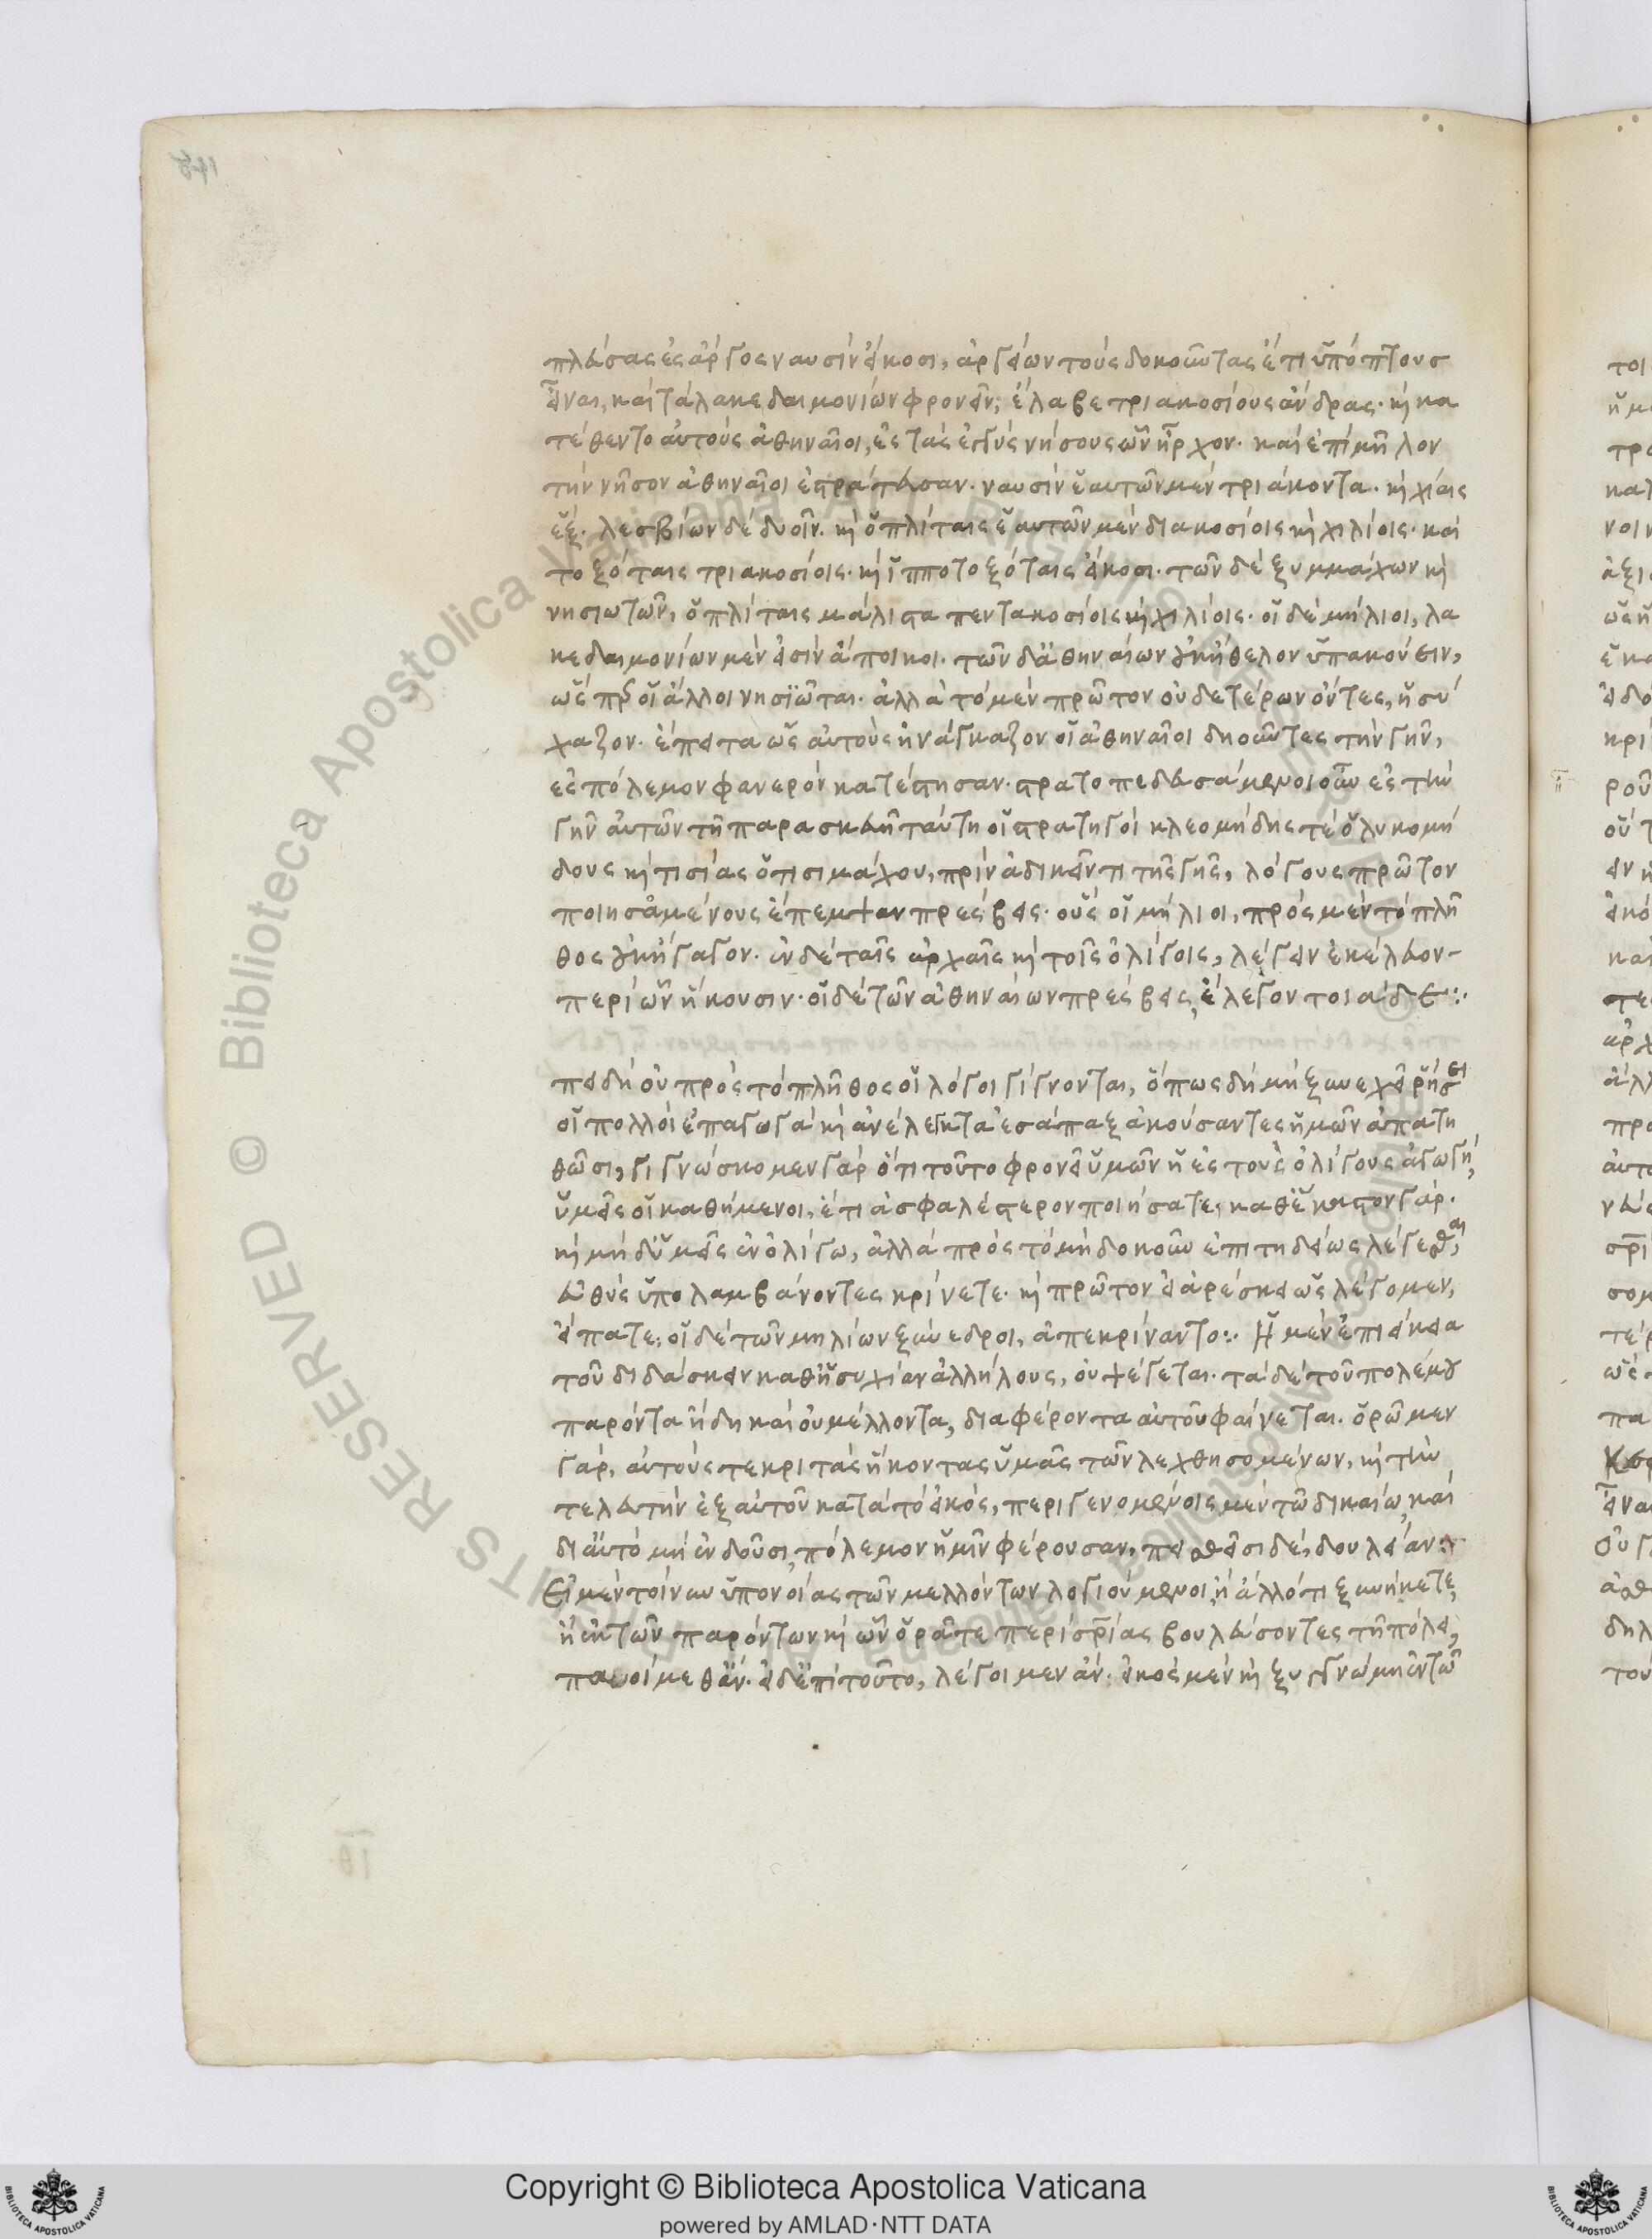 πλεύσας ἐς ἄργος ναυσὶν εἴκοσι, ἀργείων τοὺς δοκοῦντας ἔτι ὑπόπτους
εἶναι, καὶ τὰ λακεδαιμονίων φρονεῖν, ἔλαβε τριακοσίους ἄνδρας· κ̀ κα
τέθεντο αὐτοὺς ἀθηναῖοι, ἐς τὰς ἐγγὺς νήσους ὧν ἦρχον· καὶ ἐπὶ μῆλον
τὴν νῆσον ἀθηναῖοι ἐστράτευσαν· ναυσὶν ἑαυτῶν μὲν τριάκοντα· κ̀ χίαις
ἕξ· λεσβίων δὲ δυοῖν· κ̀ ὁπλίταις ἑαυτῶν μὲν διακοσίοις κ̀ χιλίοις· καὶ
τοξόταις τριακοσίοις· κ̀ ἱπποτοξόταις εἴκοσι· τῶν δὲ ξυμμάχων κ̀
νησιωτῶν, ὁπλίταις μάλιστα πεντακοσίοις κ̀ χιλίοις· οἱ δὲ μήλιοι, λα
κεδαιμονίων μέν εἰσιν ἄποικοι· τῶν δ' ἀθηναίων οὐκ ἤθελον ὑπακούειν,
ὥσπερ οἱ ἄλλοι νησιῶται· ἀλλὰ τὸ μὲν πρῶτον οὐδετέρων ὄντες, ἡσύ
χαζον· ἔπειτα ὡς αὐτοὺς ἠνάγκαζον οἱ ἀθηναῖοι δηοῦντες τὴν γῆν,
ἐς πόλεμον φανερὸν κατέστησαν· στρατοπεδευσάμενοι οὖν ἐς τὴν
γῆν αὐτῶν τῆ παρασκευῆ ταύτη οἱ στρατηγοὶ κλεομήδης τὲ ὁ λυκομή
δους κ̀ τισίας ὁ τισιμάχου, πρὶν ἀδικεῖν τι τῆς γῆς, λόγους πρῶτον
ποιησαμένους ἔπεμψαν πρέσβεις· οὓς οἱ μήλιοι, πρὸς μὲν τὸ πλῆ
θος οὐκ ἤγαγον· ἐν δὲ ταῖς ἀρχαῖς κ̀ τοῖς ὀλίγοις, λέγειν ἐκέλευον
περὶ ὧν ἥκουσιν· οἱ δὲ τῶν ἀθηναίων πρέσβεις, ἔλεγον τοιάδε:·
πειδὴ οὐ πρὸς τὸ πλῆθος οἱ λόγοι γίγνονται, ὅπως δὴ μὴ ξυνεχεῖ ῥήσει
οἱ πολλοὶ ἐπαγωγὰ κ̀ ἀνέλεγκτα ἐσάπαξ ἀκούσαντες ἡμῶν ἀπατη
θῶσι, γιγνώσκομεν γὰρ ὅτι τοῦτο φρονεῖ ὑμῶν ἡ ἐς τοὺς ὀλίγους ἀγωγή,
ὑμεῖς οἱ καθήμενοι, ἔτι ἀσφαλέστερον ποιήσατε, καθ' ἕκαστον γὰρ·
κ̀ μὴ δ' ὑμεῖς ἐν ὀλίγω, ἀλλὰ πρὸς τὸ μὴ δοκοῦν ἐπιτηδείως λέγεσθαι,
εὐθὺς ὑπολαμβάνοντες κρίνετε· κ̀ πρῶτον εἰ ἀρέσκει ὡς λέγομεν,
εἴπατε, οἱ δὲ τῶν μηλίων ξύνεδροι, ἀπεκρίναντο:· Ἡ μὲν ἐπιείκεια
τοῦ διδάσκειν καθ' ἡσυχίαν ἀλλήλους, οὐ ψέγεται· τὰ δὲ τοῦ πολέμου
παρόντα ἤδη καὶ οὐ μέλλοντα, διαφέροντα αὐτοῦ φαίνεται· ὁρῶμεν
γὰρ, αὐτούς τε κριτὰς ἥκοντας ὑμᾶς τῶν λεχθησομένων, κ̀ τὴν
τελευτὴν ἐξ αὐτοῦ κατὰ τὸ εἰκός, περιγενομένοις μὲν τῶ δικαίω, καὶ
δι' αὐτὸ μὴ ἐνδοῦσι, πόλεμον ἡμῖν φέρουσαν, πεισθεῖσι δέ, δουλείαν:·
Εἰ μὲν τοίνυν ὑπονοίας τῶν μελλόντων λογιούμενοι, ἢ ἄλλό τι ξυνήκετε,
ἢ ἐκ τῶν παρόντων κ̀ ὧν ὁρᾶτε περὶ σωτηρίας βουλεύσοντες τῆ πόλει,
παυοίμεθ' ἄν· εἰ δ' ἐπὶ τοῦτο, λέγοιμεν ἄν· εἰκὸς μὲν κ̀ ξυγγνώμη ἐν τῶ